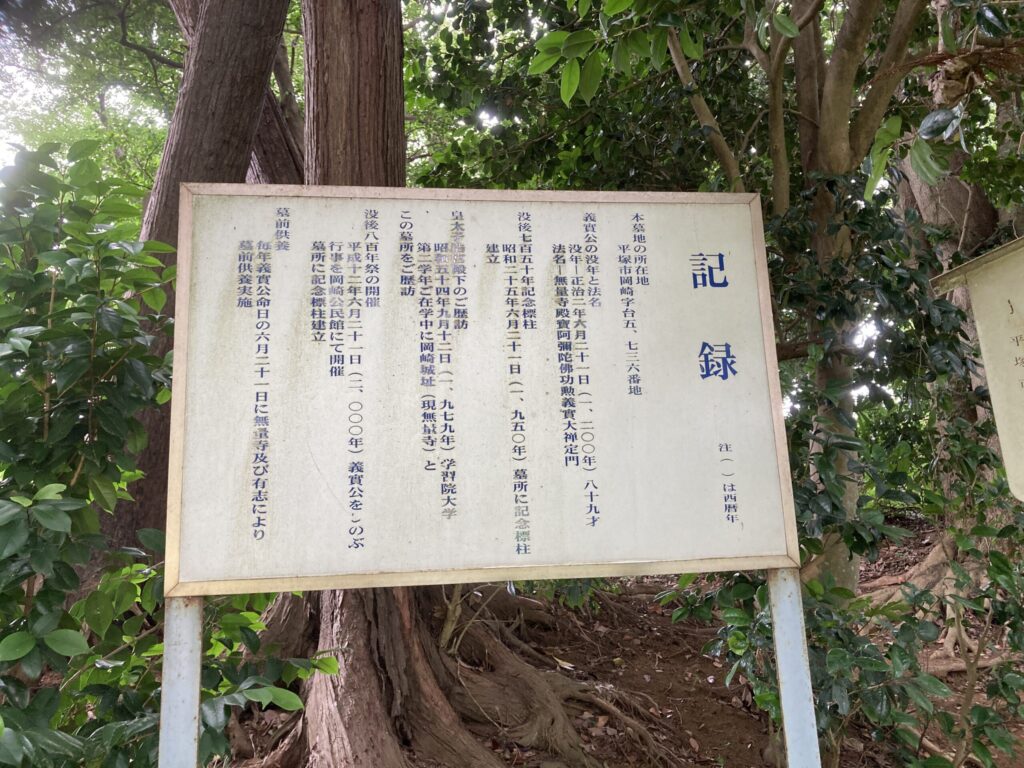 記録
注( )は西暦年
本墓地の所在地
平塚市岡崎字台五、七三六番地
義實公の没年と法名
没年―正治二年六月二十一日(一、二〇〇年)八十九才
法名―無量寺殿寶阿彌陀佛功勲義實大禅定門
没後七百五十年記念標柱
昭和二十五年六月二十一日(一、九五〇年)墓所に記念標柱
建立
皇太子 殿下のご歴訪
昭和五十四年九月十二日(一、九七九年)学習院大学
第二学年ご在学中に岡崎城址(現無量寺)と
この墓所をご歴訪
没後八百年祭の開催
平成十二年六月二十一日(二、〇〇〇年)義實公をしのぶ
行事を岡崎公民館にて開催
墓所に記念標柱建立
墓前供養
毎年義實公命日の六月二十一日に無量寺及び有志により
墓前供養実施
平塚